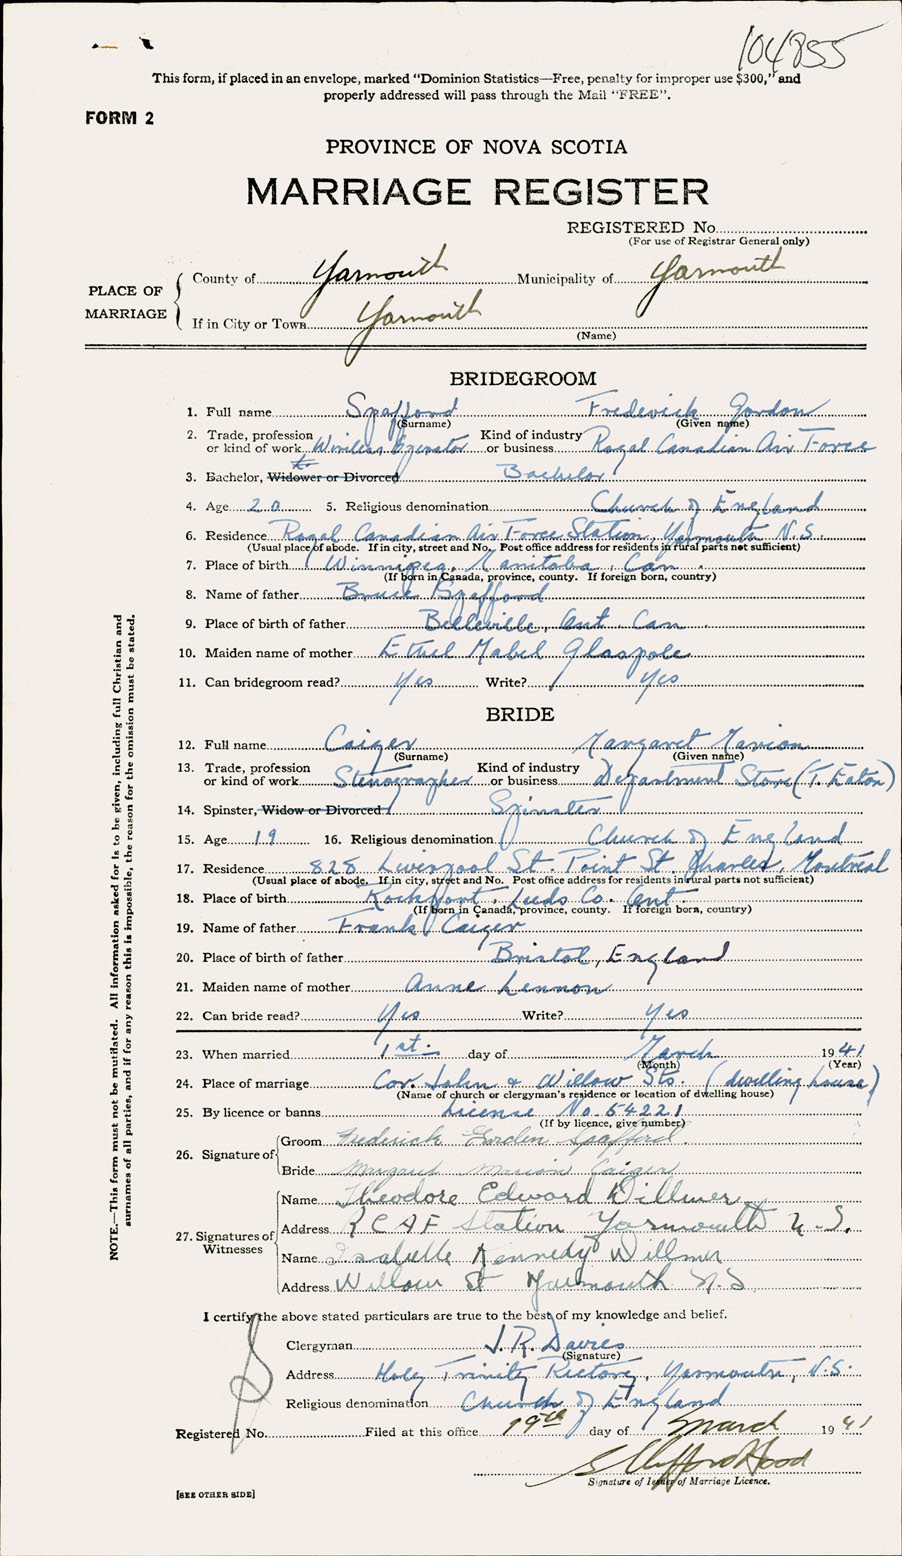 104855
This form, if placed in an envelope, marked “Dominion Statistics—Free, penalty for improper use $300,” and
properly addressed will pass through the Mail “FREE”.
FORM 2
PROVINCE OF NOVA SCOTIA
MARRIAGE REGISTER
REGISTERED No.
(For use of Registrar General only)
PLACE OF MARRIAGE
County of Yarmouth Municipality of Yarmouth
If in City or Town Yarmouth
(Name)
BRIDEGROOM
1. Full name Spafford Frederick Gordon
(Surname) (Given name)
2. Trade, profession or kind of work Wireless Operator Kind of industry or business Royal Canadian Air Force
3. Bachelor, Widower or Divorced Bachelor
4. Age 20 5. Religious denomination Church of England
6. Residence Royal Canadian Air Force Station, Yarmouth N.S.
(Usual place of abode. If in city, street and No. Post office address for residents in rural parts not sufficient)
7. Place of birth Winnipeg, Manitoba, Can.
(If born in Canada, province, county. If foreign born, country)
8. Name of father Bruce Spafford
9. Place of birth of father Belleville, Ont. Can
10. Maiden name of mother Ethel Mabel Glaspole
11. Can bridegroom read? Yes Write? Yes
BRIDE
12. Full name Caiger Margaret Marion
(Surname) (Given name)
13. Trade, profession or kind of work Stenographer Kind of industry or business Department Store (T. Eaton)
14. Spinster, Widow or Divorced Spinster
15. Age 19 16. Religious denomination Church of England
17. Residence 828 Liverpool St. Point St. Charles, Montreal
(Usual place of abode. If in city, street and No. Post office address for residents in rural parts not sufficient)
18. Place of birth Rockport, Leeds Co. Ont.
(If born in Canada, province, county. If foreign born, country)
19. Name of father Frank Caiger
20. Place of birth of father Bristol, England
21. Maiden name of mother Anne Lennon
22. Can bride read? Yes Write? Yes
23. When married 1st. day of March 1941
(Month) (Year)
24. Place of marriage Cor. John & Willow Sts. (dwelling house)
(Name of church or clergyman's residence or location of dwelling house)
25. By licence or banns License No. 54221
(If by licence, give number)
26. Signature of
Groom Frederick Gordon Spafford
Bride Margaret Marion Caiger
27. Signatures of Witnesses
Name Theodore Edward Willmer
Address R C A F Station Yarmouth N.S.
Name Isabelle Kennedy Willmer
Address Willow St Yarmouth N.S
I certify the above stated particulars are true to the best of my knowledge and belief.
Clergyman J. R. Davies
(Signature)
Address Holy Trinity Rectory, Yarmouth, N.S.
Religious denomination Church of England
Registered No. Filed at this office 19th day of March 1941
S Clifford Hood
Signature of Issuer of Marriage Licence.
[SEE OTHER SIDE]
NOTE.—This form must not be mutilated. All information asked for is to be given, including full Christian and
surnames of all parties, and if for any reason this is impossible, the reason for the omission must be stated.